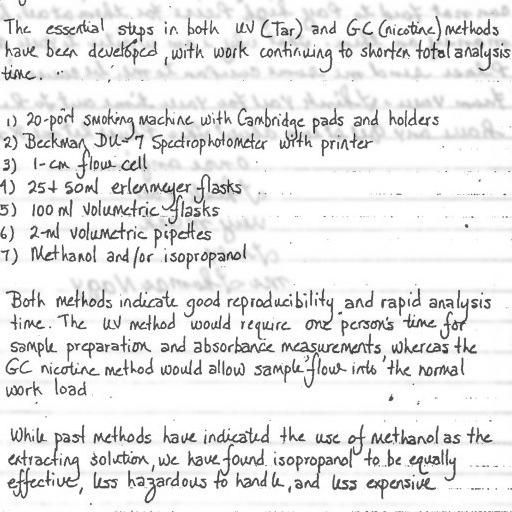 The essential steps in both UV (Tar) and GC (nicotine) methods
have been developed, with work continuing to shorten total analysis
time.
1) 20-port smoking machine with Cambridge pads and holders
2) Beckman DU-7 Spectrophotometer with printer
3) 1-cm flow cell
4) 25 + 50 ml erlenmeyer flasks
5) 100 ml volumetric flasks
6) 2-ml volumetric pipettes
7) Methanol and/or isopropanol
Both methods indicate good reproducibility and rapid analysis
time. The UV method would require one person's time for
sample preparation and absorbance measurements whereas the
GC nicotine method would allow sample flow into the normal
work load
While past methods have indicated the use of methanol as the
extracting solution, we have found isopropanol to be equally
effective, less hazardous to handle, and less expensive